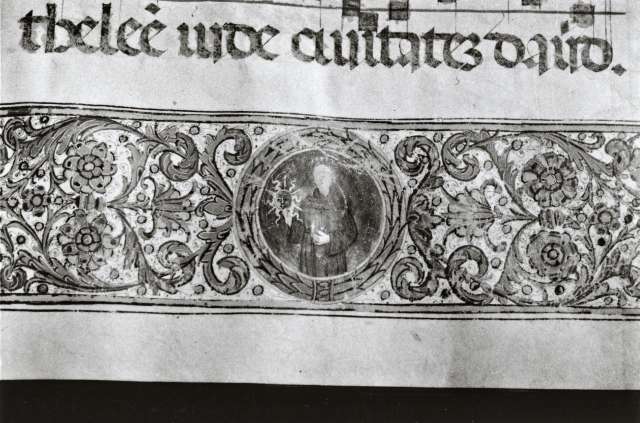 theleē iude ciuitates dauid.